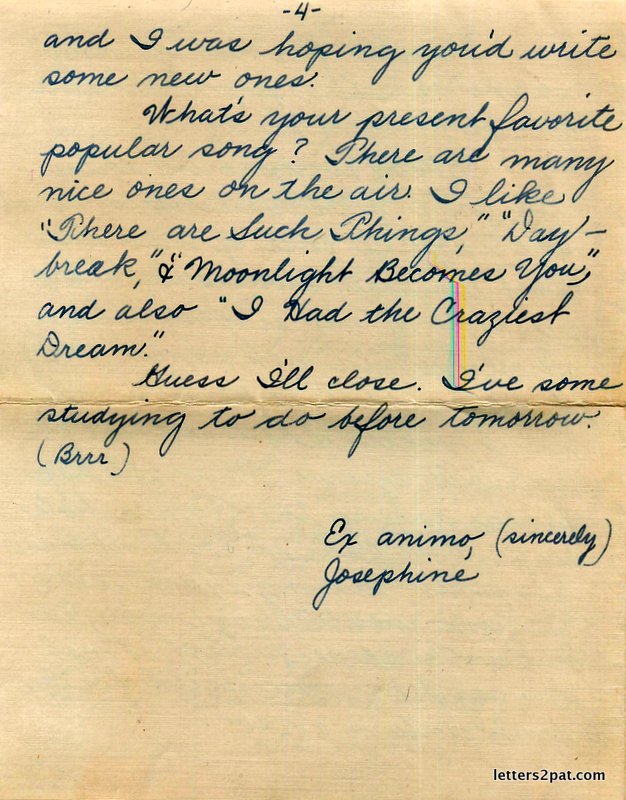 -4-
and I was hoping you'd write
some new ones.
What's your present favorite
popular song? There are many
nice ones on the air. I like
"There are Such Things," "Day-
break," & "Moonlight Becomes You,"
and also "I Had the Craziest
Dream."
Guess I'll close. I've some
studying to do before tomorrow.
(Brrr)
Ex animo, (sincerely)
Josephine
letters2pat.com